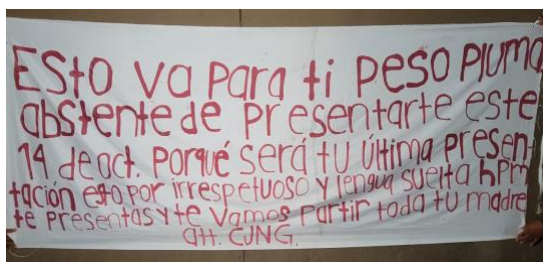 Esto va para ti peso pluma
abstente de presentarte este
14 de oct. Porqué será tu última presen-
tación esto por irrespetuoso y lengua suelta hPm
te presentas y te vamos partir toda tu madre
att. CJNG.